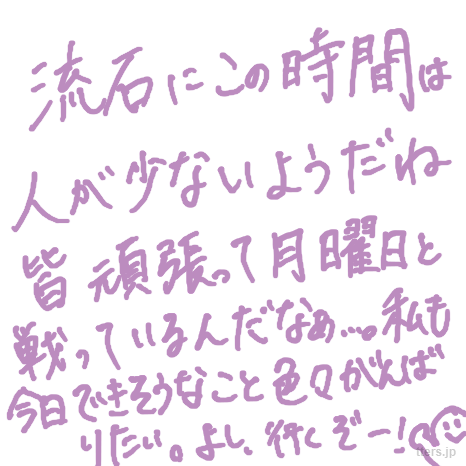 流石にこの時間は
人が少ないようだね
皆頑張って月曜日と
戦っているんだなぁ…。私も
今日できそうなこと色々がんば
りたい。よし、行くぞー!
tters.jp